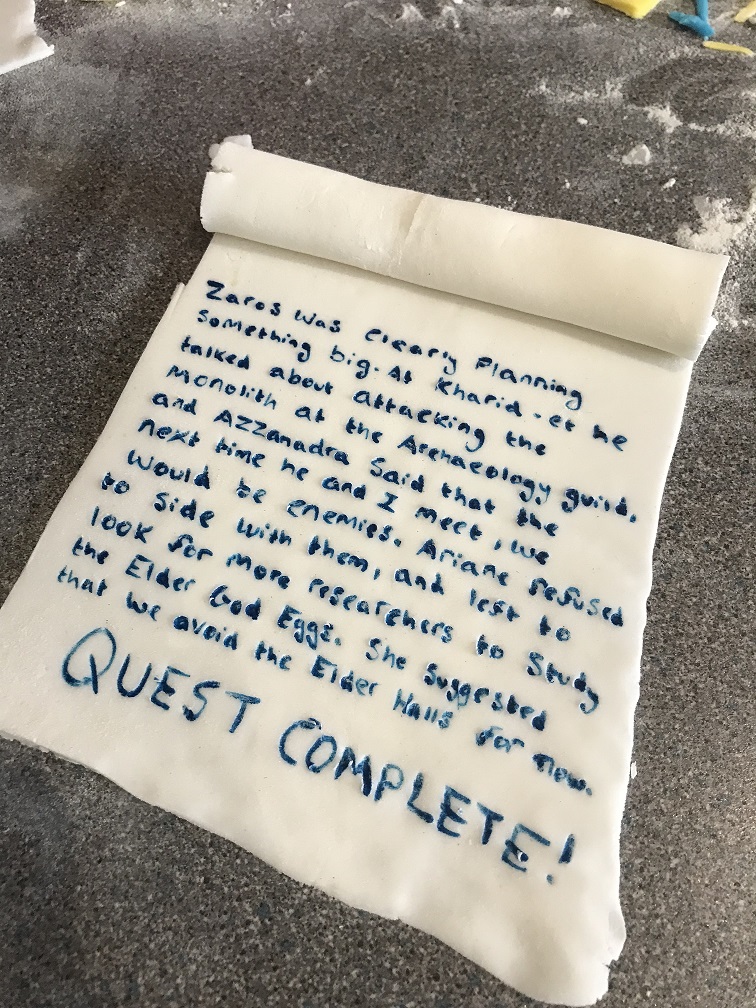 Zaros was clearly planning
something big. At Kharid-et he
talked about attacking the
Monolith at the Archaeology guild,
and Azzanadra said that the
next time he and I meet, we
would be enemies. Ariane refused
to side with them, and left to
look for more researchers to study
the Elder God Eggs. She suggested
that we avoid the Elder Halls for now.
QUEST COMPLETE!